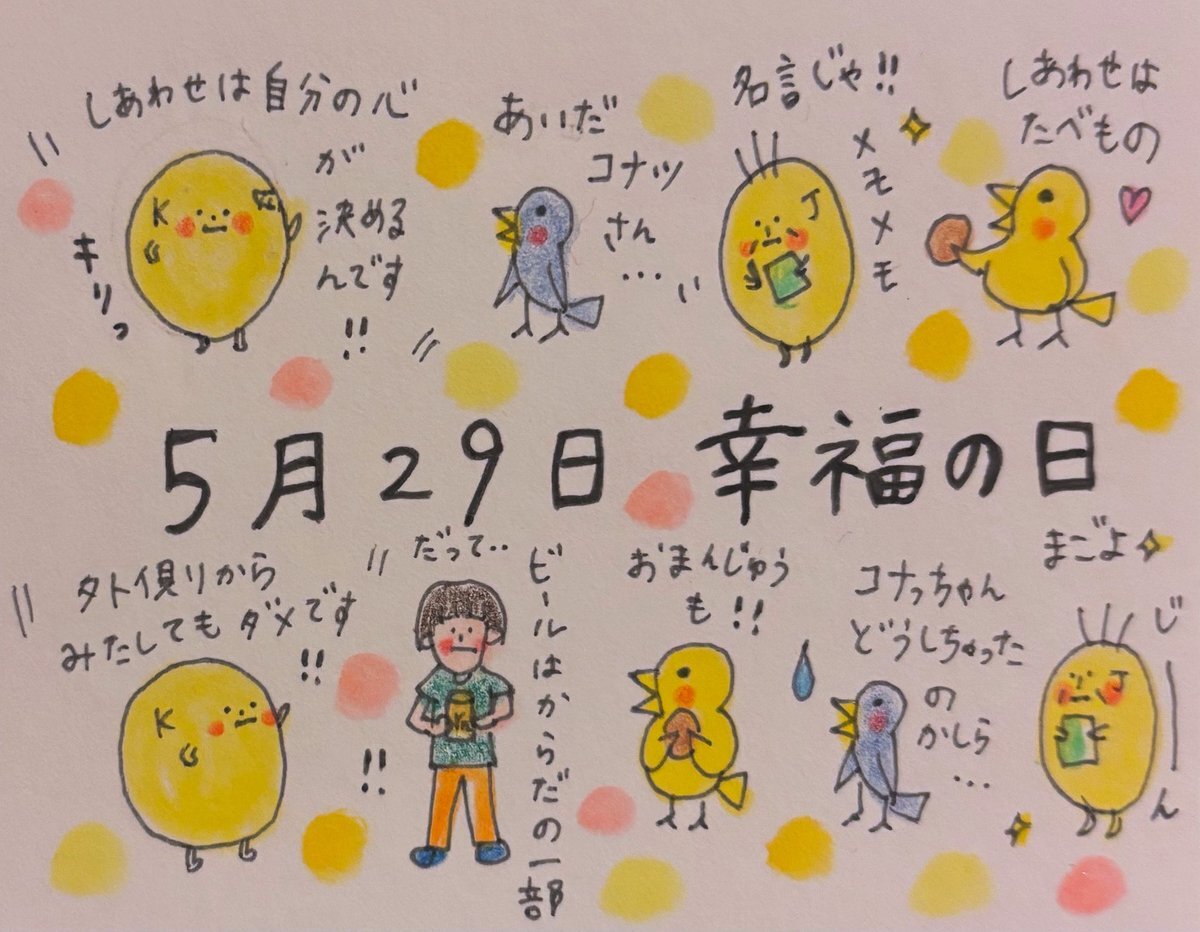 しあわせは自分の心
が
決める
んです
!!
キリっ
K
あいだ
コナツ
さん
...
名言じゃ!!
メモメモ
J
しあわせは
たべもの
5月29日 幸福の日
外側から
みたしても ダメです
!!
K
だって..
ビールはからだの一部
!!
おまんじゅう
も!!
コナっちゃん
どうしちゃった
の
かしら
...
まごよ
じーーん
J